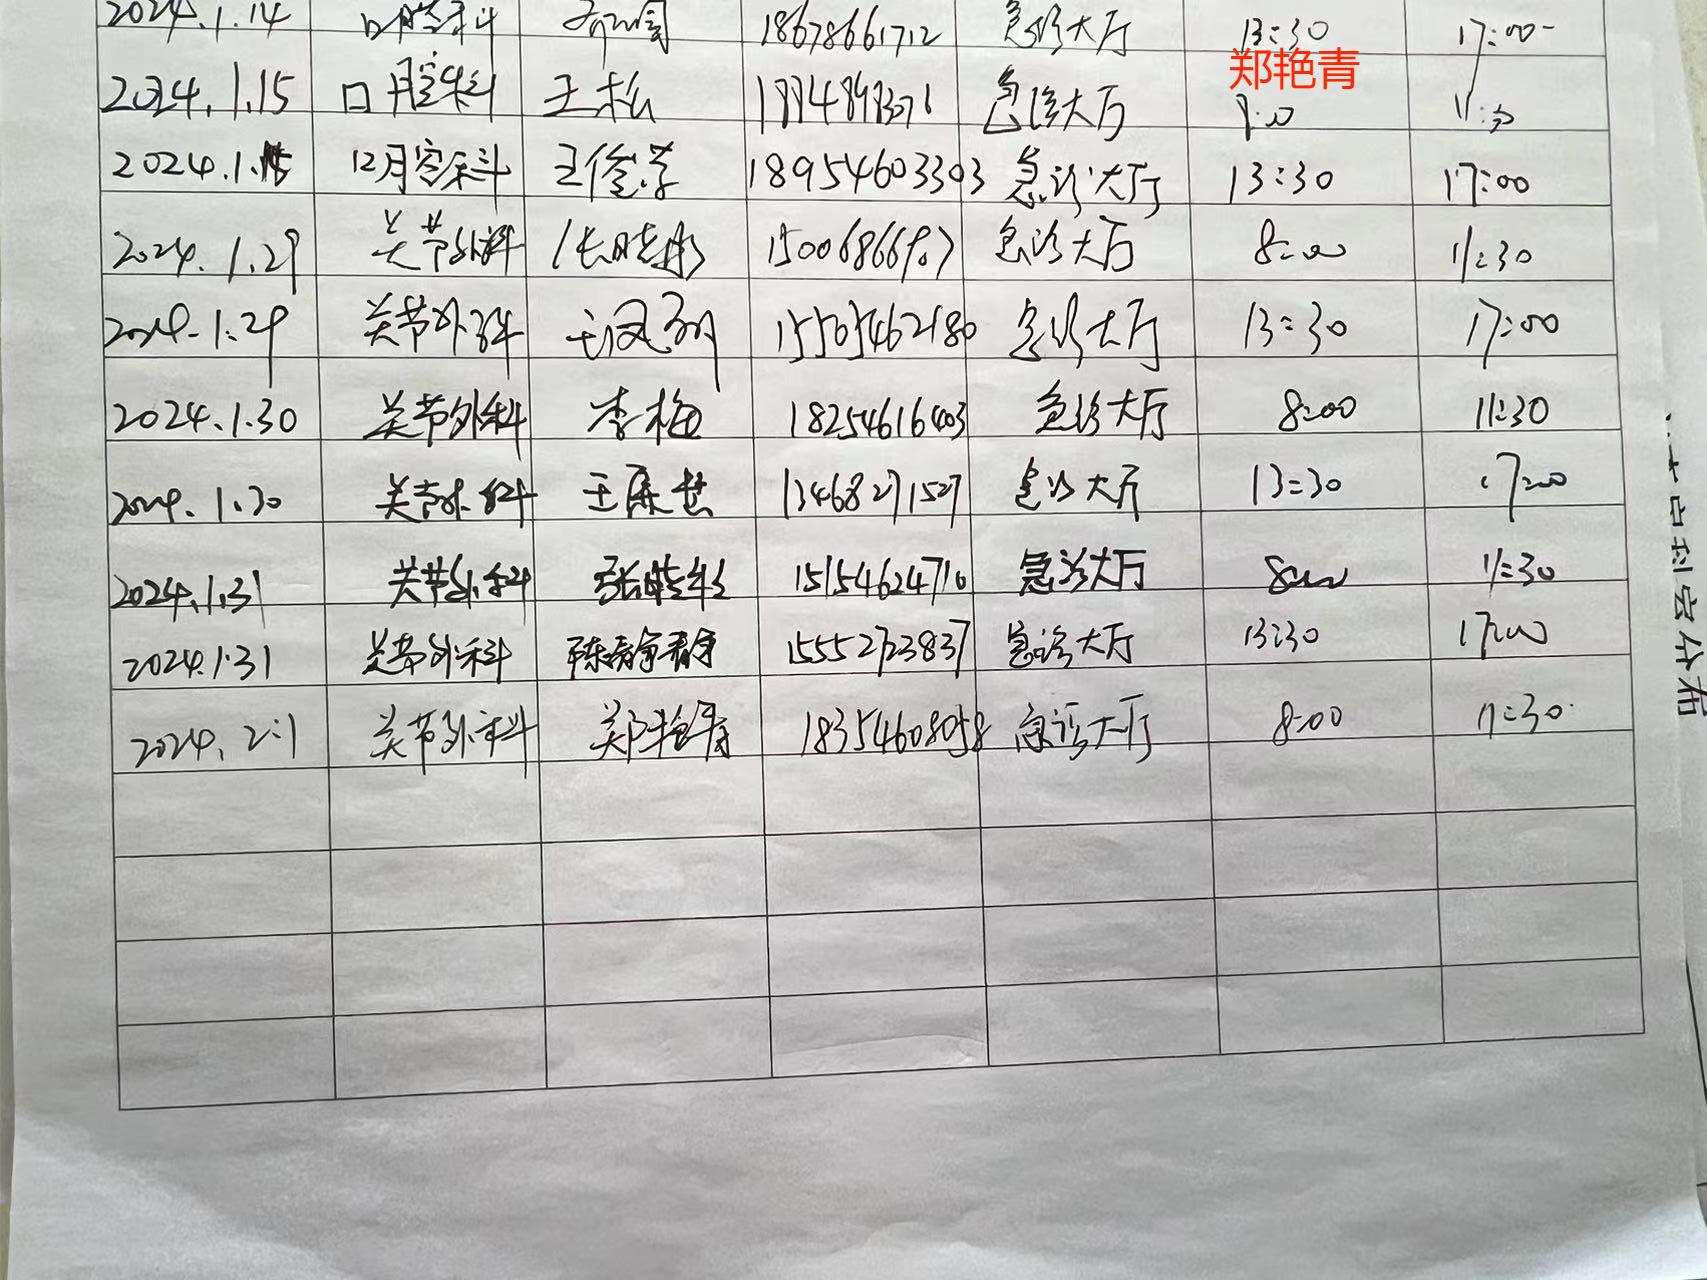 2024.1.14 口腔科 18678661712 急诊大厅 13:30 17:00
郑艳青
2024.1.15 口腔科 王松 急诊大厅 8:00 11:30
2024.1.15 口腔科 王俊学 18954603303 急诊大厅 13:30 17:00
2024.1.29 关节外科 张晓彤 急诊大厅 8:00 11:30
2024.1.29 关节外科 15505462180 急诊大厅 13:30 17:00
2024.1.30 关节外科 李梅 18254616403 急诊大厅 8:00 11:30
2024.1.30 关节外科 13468271527 急诊大厅 13:30 17:00
2024.1.31 关节外科 15154624710 急诊大厅 8:00 11:30
2024.1.31 关节外科 陈静静 15552723837 急诊大厅 13:30 17:00
2024.2.1 关节外科 郑艳青 18354608058 急诊大厅 8:00 11:30
科室分布